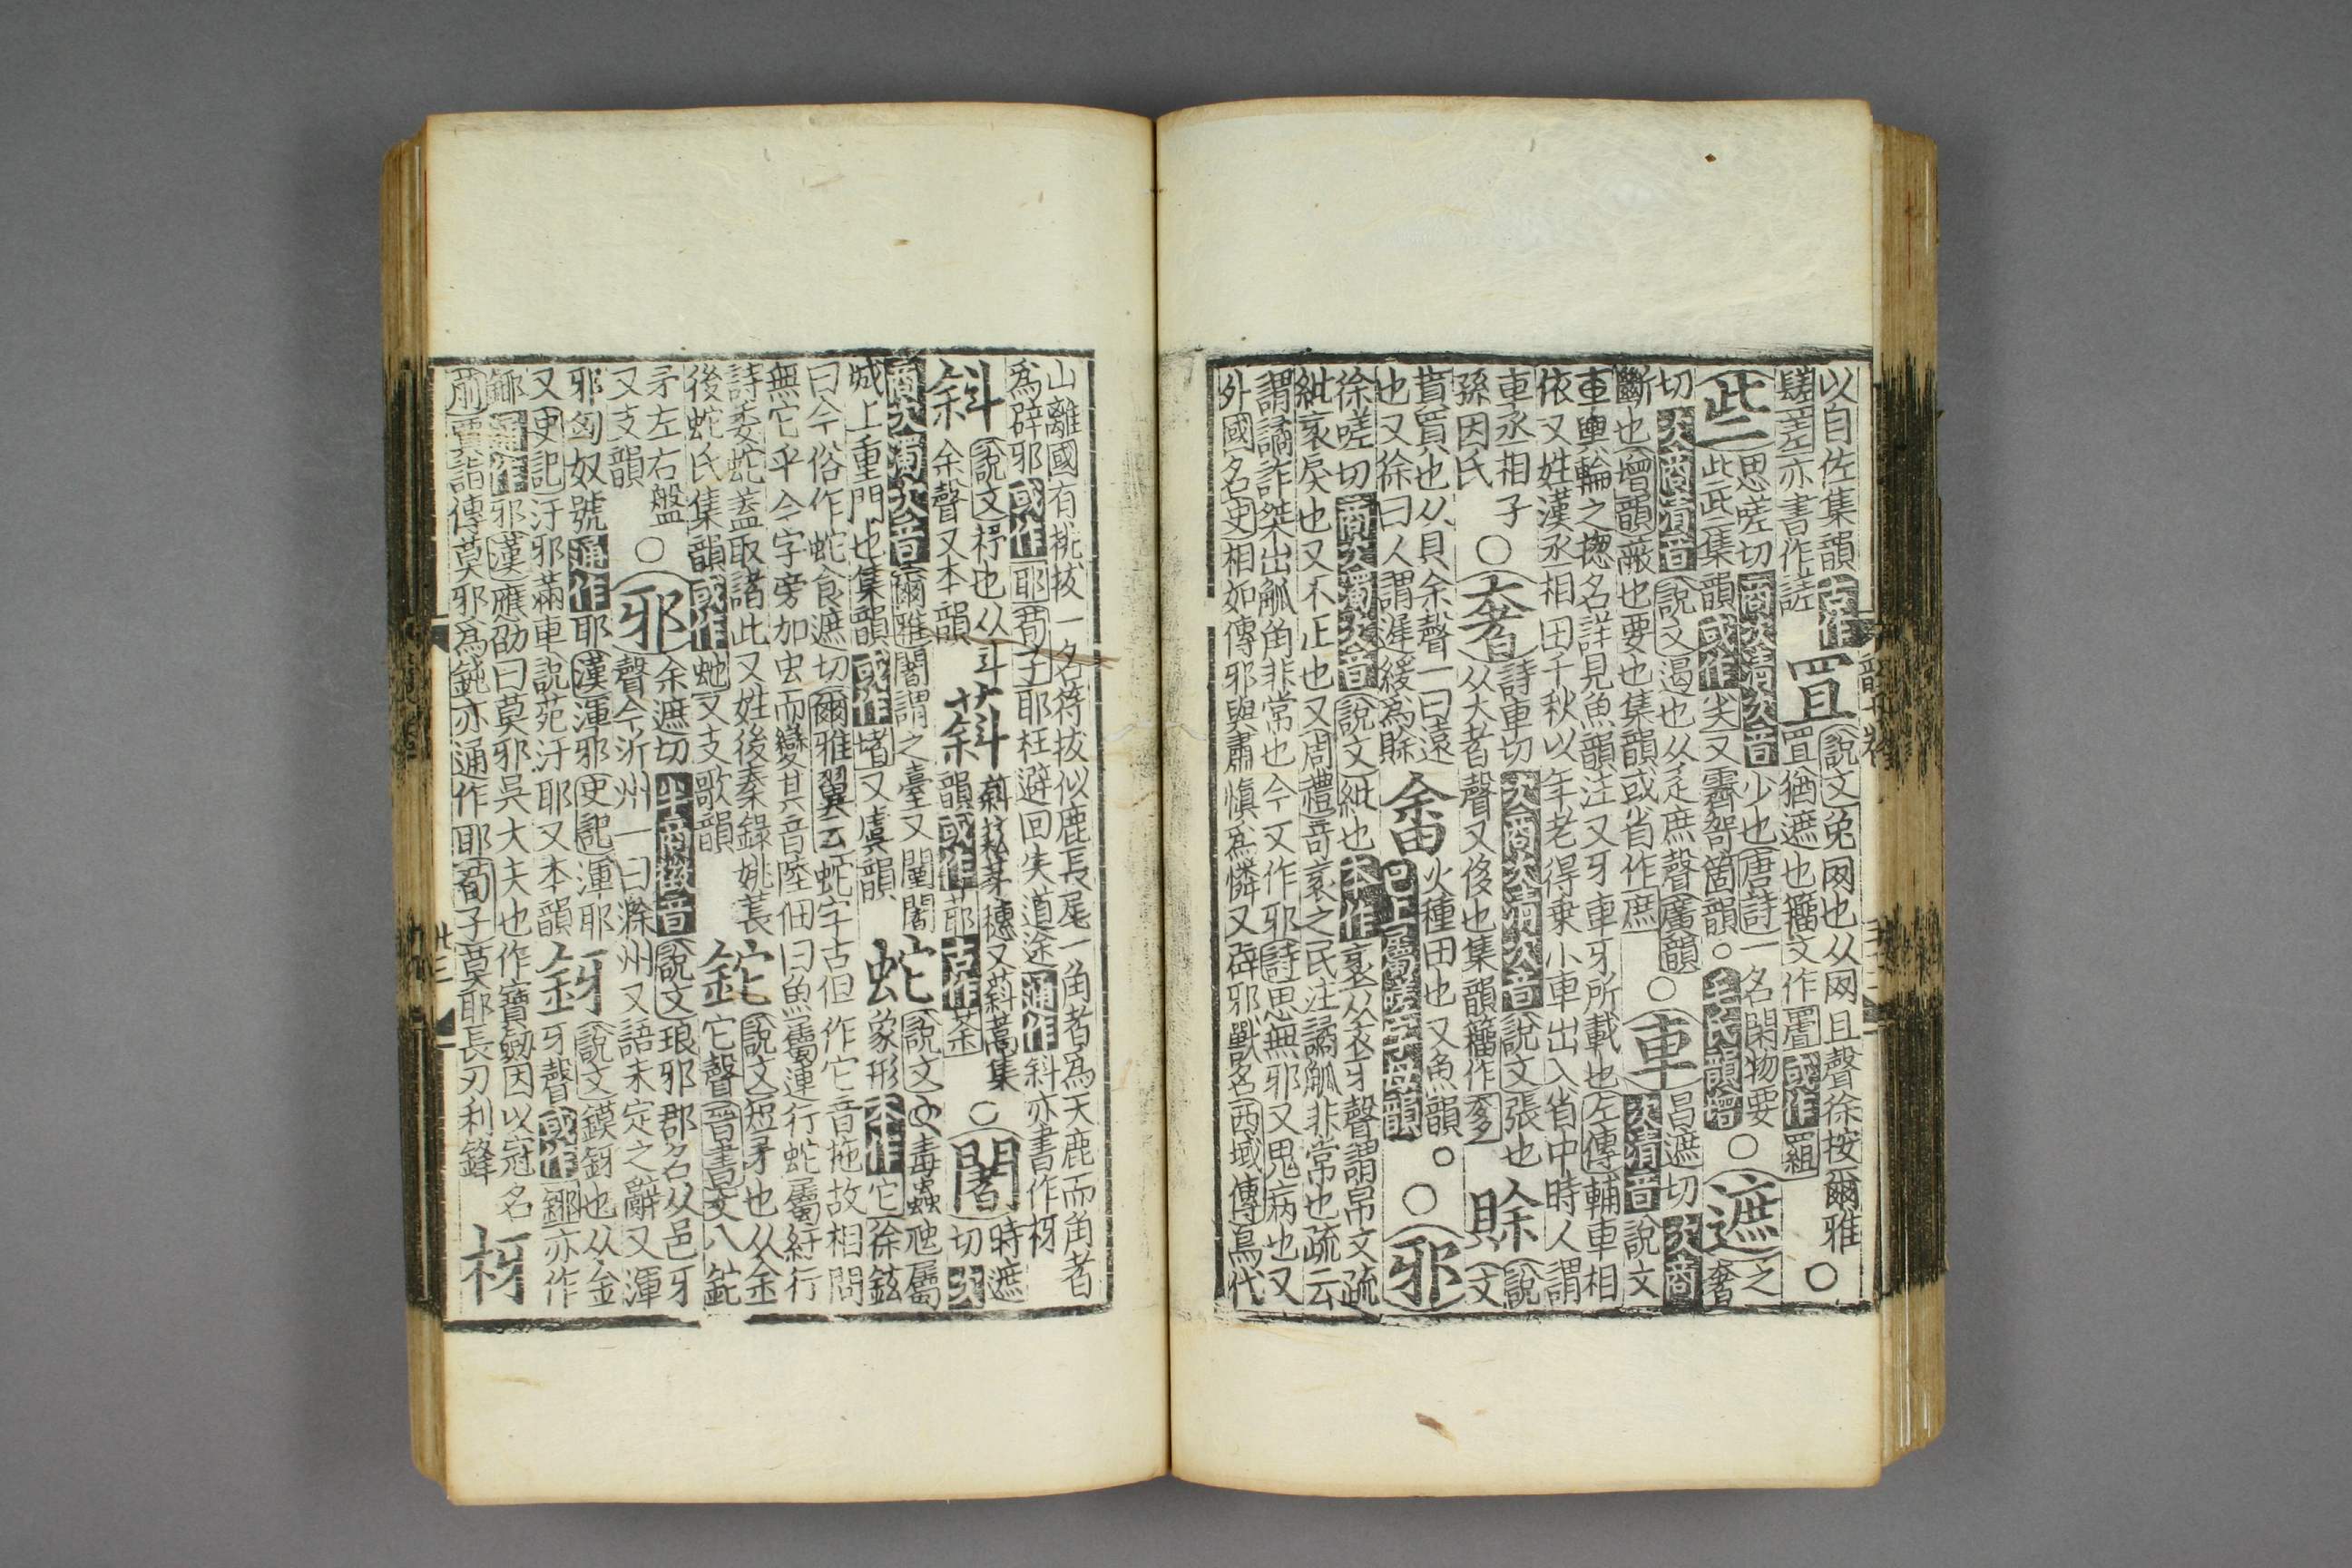 以自佐集韻古作罝說文兔网也从网且聲徐按爾雅○
䰈䑘亦書作䜅罝猶遮也籀文作罝或作罝
些思嗟切商次清次音少也唐詩一名閑物要○遮之奢
此些集韻或作㱔又霽哿箇韻○毛氏韻增
切次商清音說文遏也从辵庶聲廣韻○車昌遮切次商
斷也增韻蔽也要也集韻或省作庶次清音說文
車輿輪之揔名詳見魚韻注又牙車牙所載也左傳輔車相
依又姓漢丞相田千秋以年老得乗小車出入省中時人謂
車丞相子○奢詩車切次商次清次音說文張也賖說
孫因氏从大者聲又侈也集韻籀作奓文
貰買也从貝余聲一曰遠畬火種田也又魚韻○○邪
也又徐曰人謂遲緩為賖已上屬嗟字母韻
徐嗟切商次濁次音說文紕也本作衺从衣牙聲謂帛文疏
紕衺戾也又不正也又周禮奇衺之民注譎觚非常也疏云
謂譎詐桀出觚角非常也今文作邪詩思無邪又鬼病也又
外國名史相如傳邪與肅愼為憐又辟邪獸名西域傳烏弋
山離國有挑拔一名符拔似鹿長尾一角者為天鹿而角者
為辟邪或作耶荀子耶枉避回失道途通作斜亦書作枒
斜說文抒也从斗䔑蕛䔑茅穗又䔑蒿集○闍時遮
余聲又本韻韻或作䓉古作荼切次
商次濁次音爾雅闍謂之臺又闉闍蛇說文它毒蟲虵屬
城上重門也集韻或作堵又虞韻象形本作它徐鉉
曰今俗作蛇食遮切爾雅翼云蛇字古但作它音拖故相問
無它乎今字旁加虫而變其音陸佃曰魚屬連行蛇屬紆行
詩委蛇蓋取諸此又姓後秦錄姚萇鉈說文短矛也从金
後蛇氏集韻或作虵又支歌韻它聲晉書丈八鉈
矛左右盤○邪余遮切半商徵音說文琅邪郡名从邑牙
又支韻聲今沂州一曰滁州又語末定之辭又渾
邪匈奴號通作耶漢渾邪史記渾耶釾說文鏌釾也从金
又史記汙邪滿車說苑汙耶又本韻牙聲或作鋣亦作
鎁通作邪漢應劭曰莫邪吳大夫也作寶劒因以冠名
前賈誼傳莫邪為鈍亦通作耶荀子莫耶長刃利鋒枒